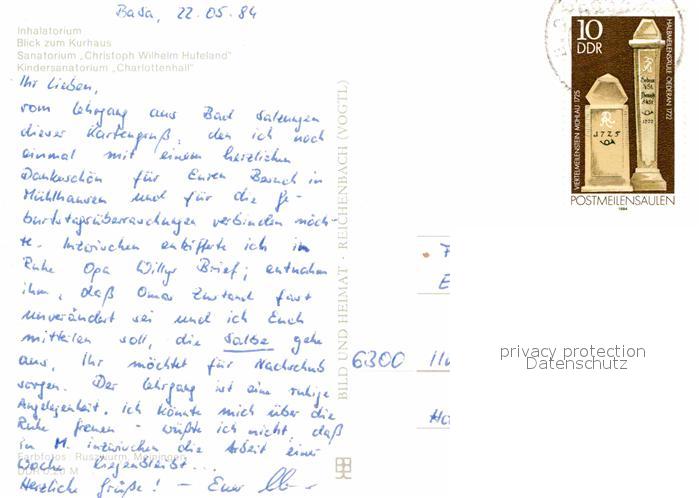 BaSa, 22.05.84
Inhalatorium
Blick zum Kurhaus
Sanatorium „Christoph Wilhelm Hufeland"
Kindersanatorium „Charlottenhall"
Ihr Lieben,
vom Lehrgang aus Bad Salzungen
dieser Kartengruß, den ich noch
einmal mit einem herzlichen
Dankeschön für Euren Besuch in
Mühlhausen und für die Ge-
burtstagsüberraschungen verbinden möch-
te. Inzwischen entzifferte ich in
Ruhe Opa Willys Brief; entnahm
ihm, daß Omas Zustand fast
unverändert sei und ich Euch
mitteilen soll, die Salbe gehe
aus, Ihr möchtet für Nachschub
sorgen. Der Lehrgang ist eine ruhige
Angelegenheit. Ich könnte mich über die
Ruhe freuen - wüßte ich nicht, daß
in M. inzwischen die Arbeit einer
Woche liegenbleibt...
Farbfotos: Ruszwurm, Meiningen
DDR 0,20 M
Herzliche Grüße! - Euer
BILD UND HEIMAT · REICHENBACH (VOGTL)
10
DDR
VIERTELMEILENSTEIN MÜHLAU 1725
HALBMEILENSÄULE OEDERAN 1722
AR
1725
POSTMEILENSÄULEN
1984
6300
privacy protection
Datenschutz